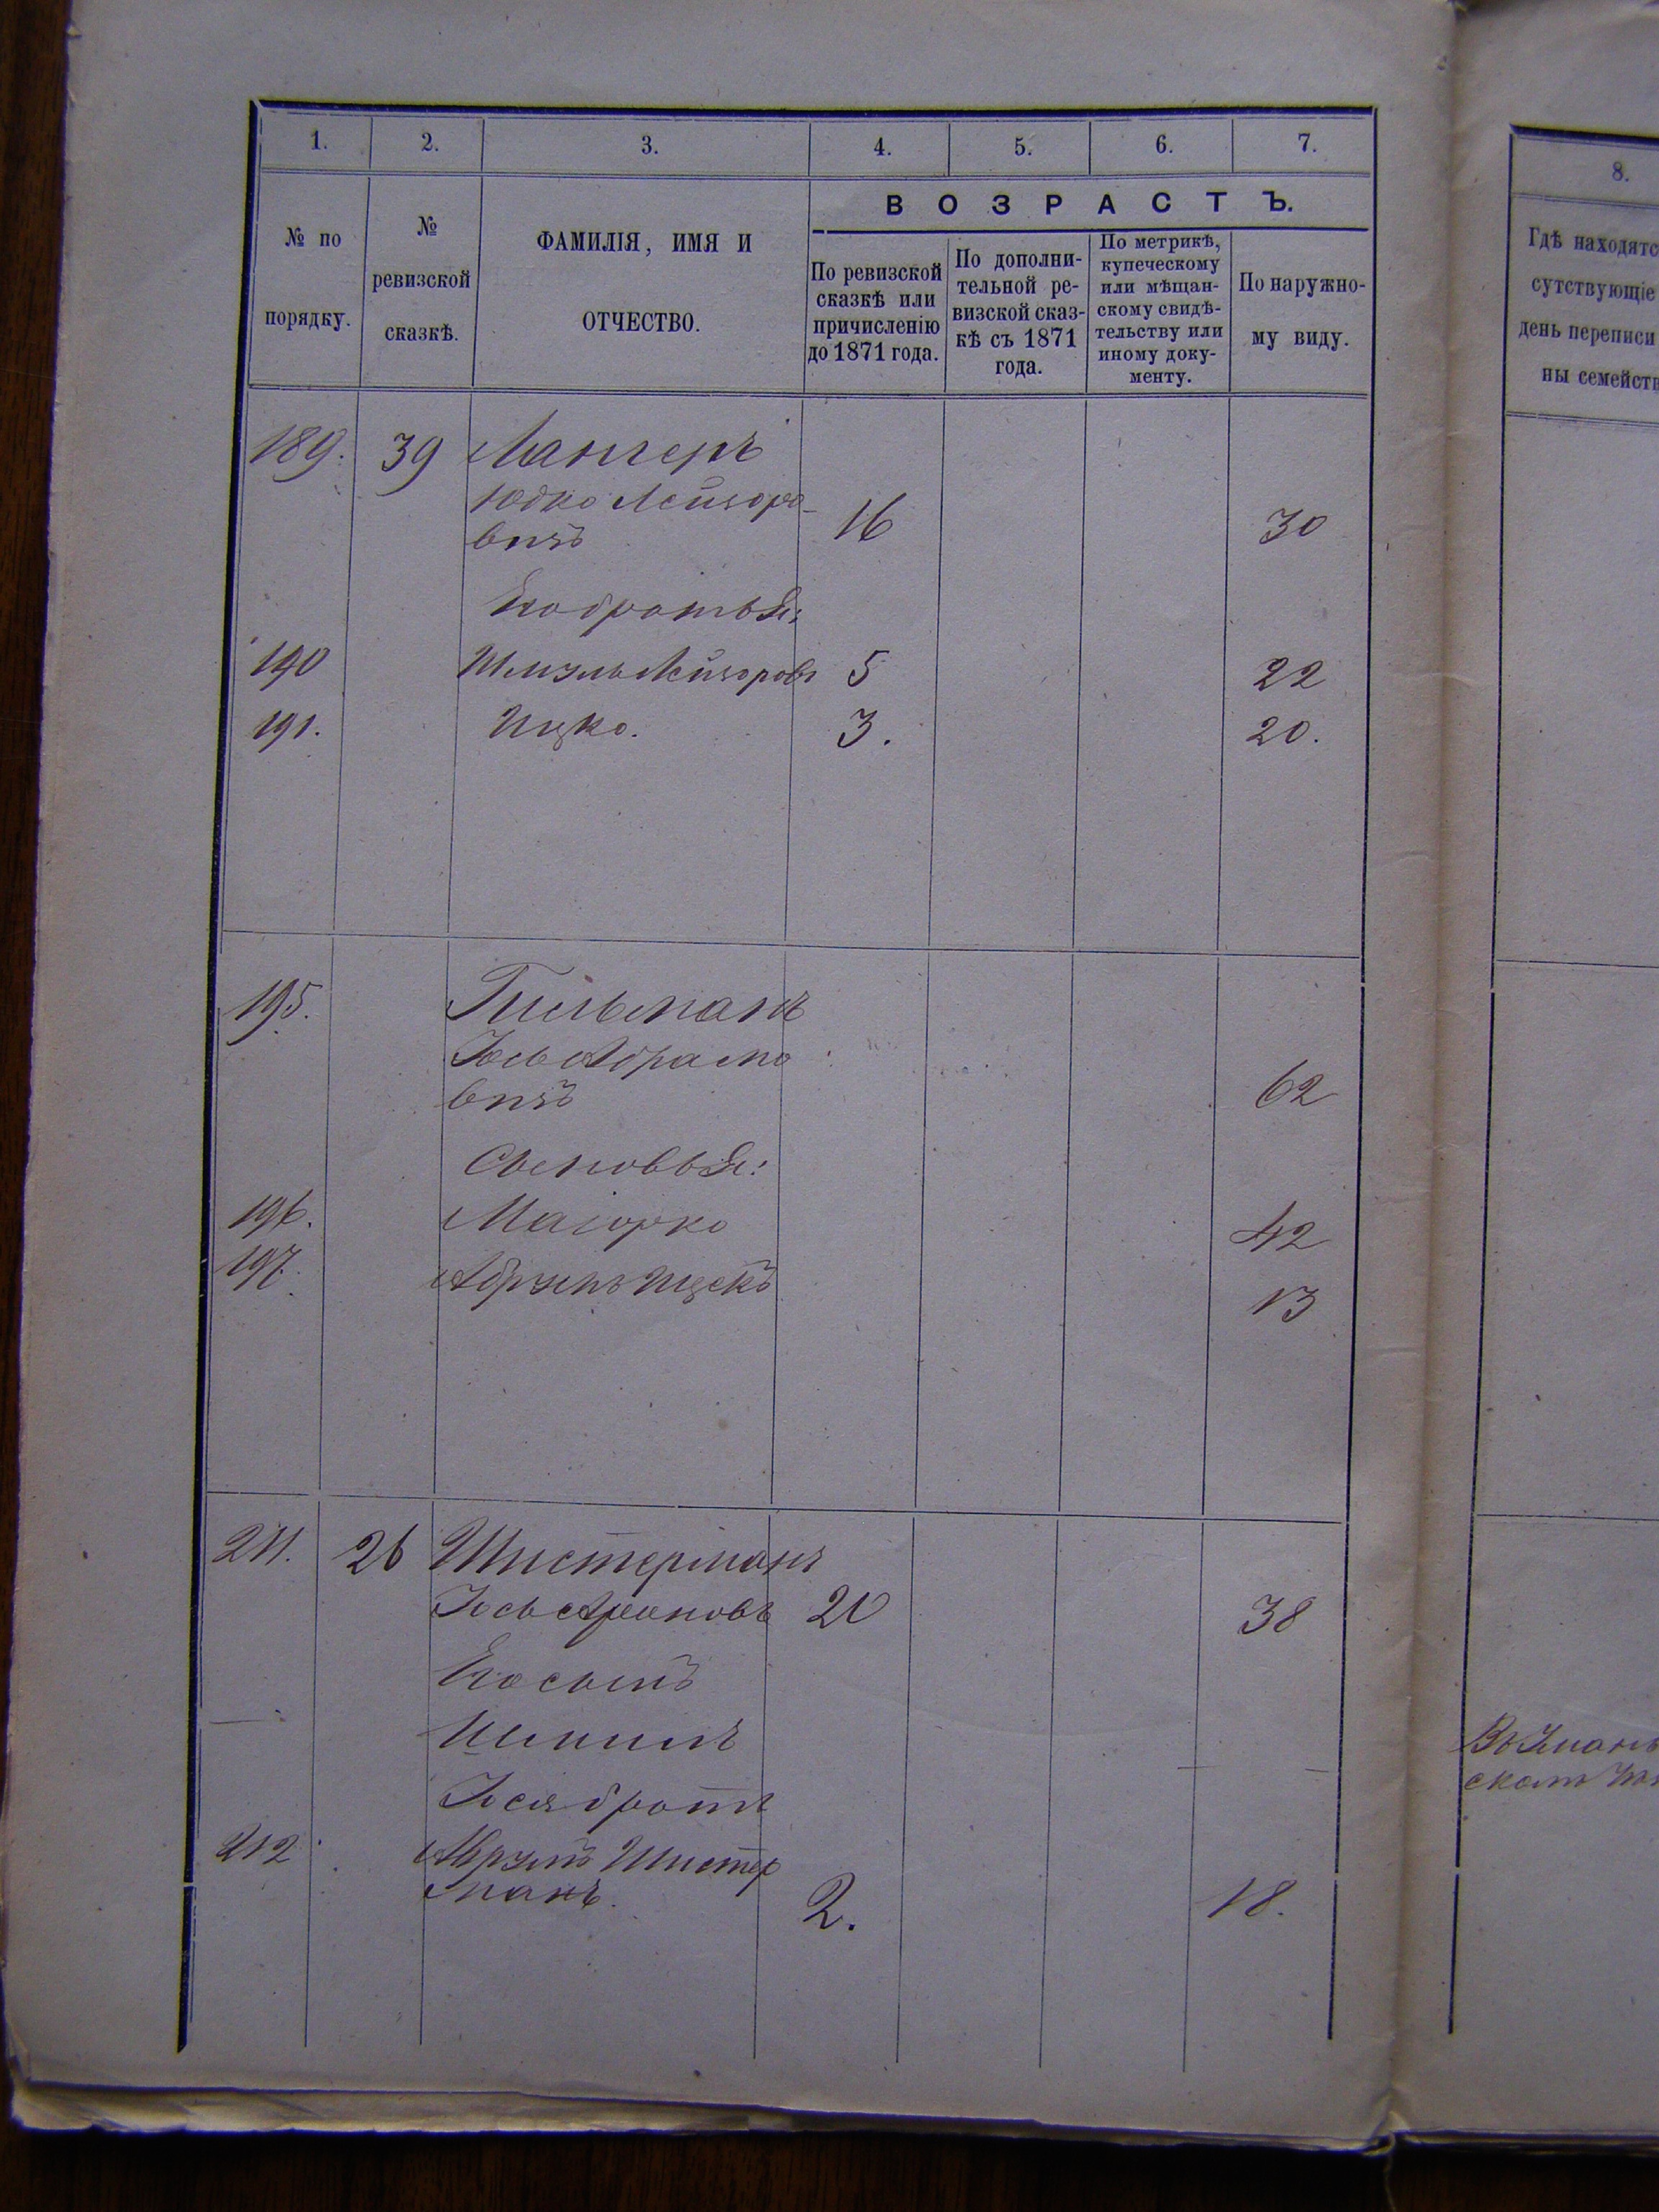 1.
2.
3.
4.
5.
6.
7.
№ по
порядку.
№
ревизской
сказкѣ.
ФАМИЛІЯ, ИМЯ И
ОТЧЕСТВО.
ВОЗРАСТЪ.
По ревизской
сказкѣ или
причисленію
до 1871 года.
По дополни-
тельной ре-
визской сказ-
кѣ съ 1871
года.
По метрикѣ,
купеческому
или мѣщан-
скому свидѣ-
тельству или
иному доку-
менту.
По наружно-
му виду.
189. 39 Лангеръ
Юдко Лейзоро-
вичъ 16 30
Его братья:
190 Шмуль Лейзоровъ 5 22
191. Ицко. 3. 20.
195. Гительманъ
Іось Абрамо
вичъ 62
Сыновья:
196. Маіорко 42
197. Ицекъ 13
211. 26 Шистерманъ
Іось 20 38
Его сынъ
Шмилъ
Іося братъ
212 Абрумъ Шистер
манъ. 2. 18.
8.
Гдѣ находятс
сутствующіе
день переписи
ны семейств